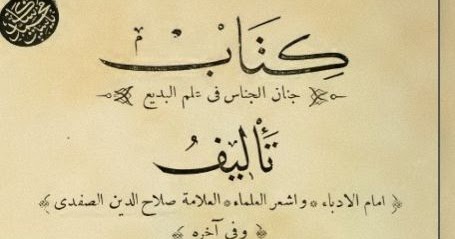 كِتَابُ
جنان الجناس فى علم البديع
تَأْلِيفُ
امام الادباء * واشعر العلماء * العلامة صلاح الدين الصفدى
وفى آخره